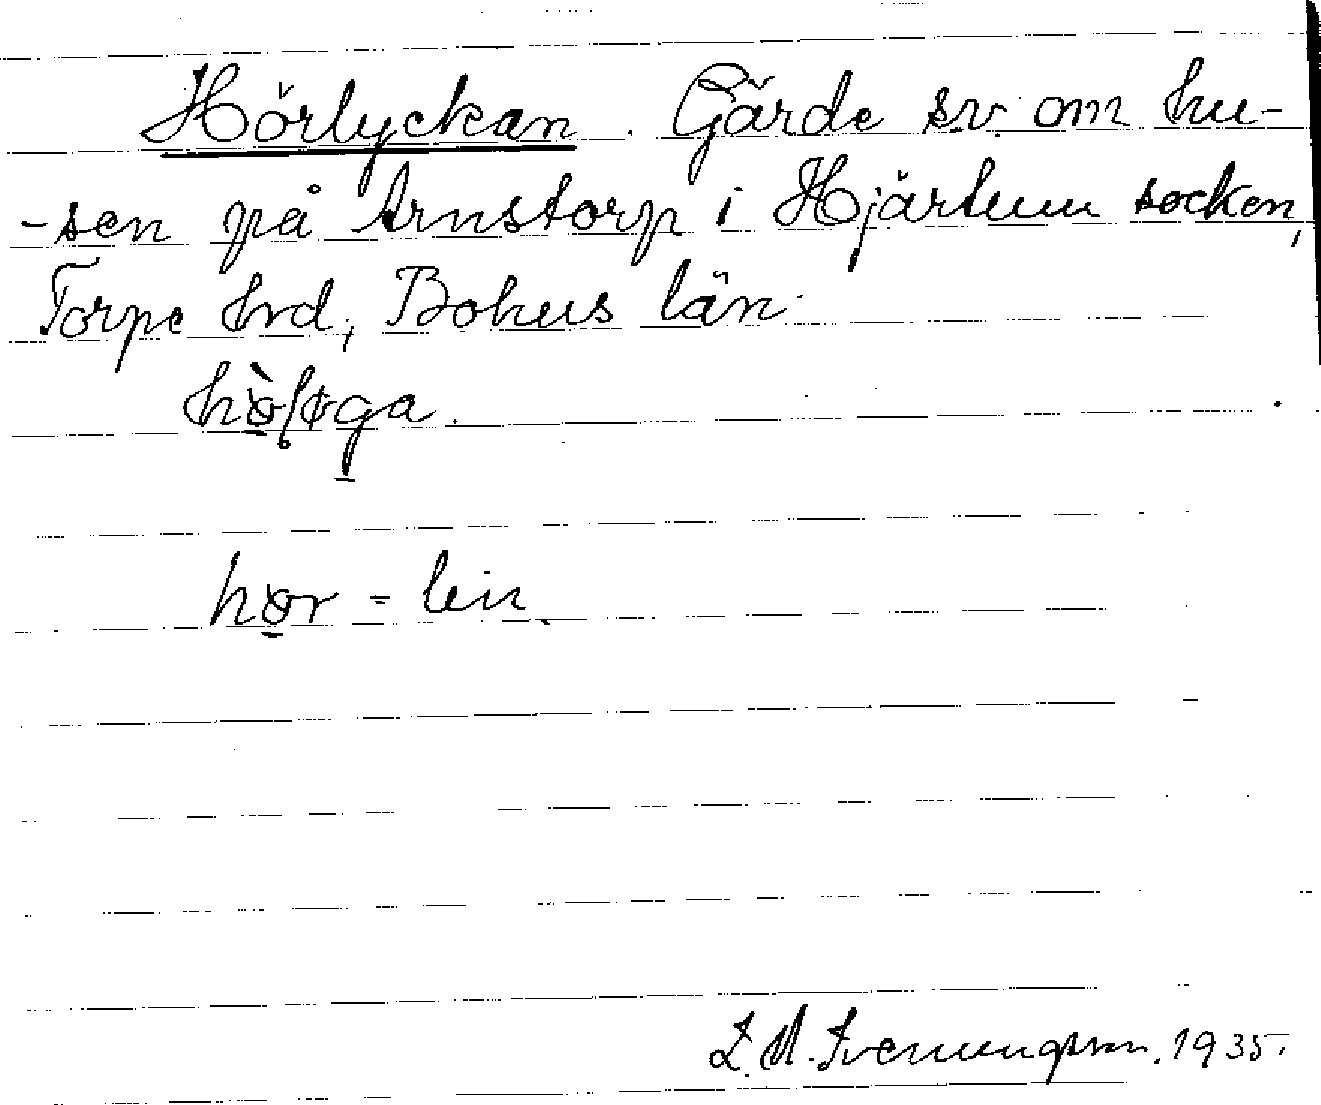 Hörlyckan. Gärde sv. om hu-
-sen på Arnstorp i Hjärtum socken,
Torpe hrd, Bohus län.
hør = lin.
Svenungsson. 1935.